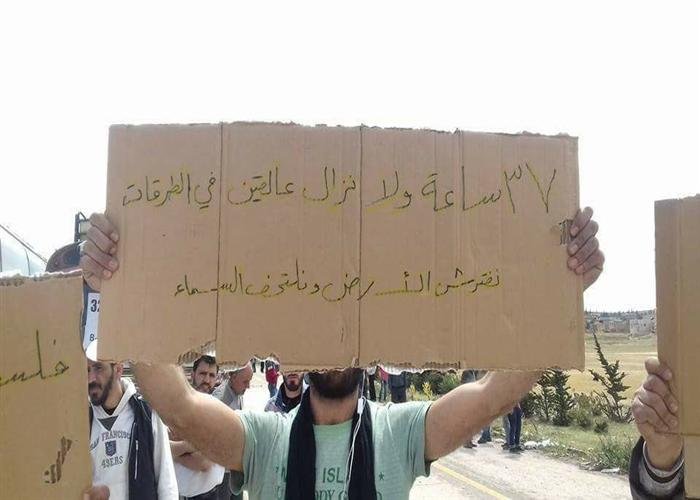 ٣٧ ساعة ولا نزال عالقين في الطرقات
نفترش الأرض ونلتحف السماء
فلس
32
8
SAN
FRANCISCO
49ERS
ISL